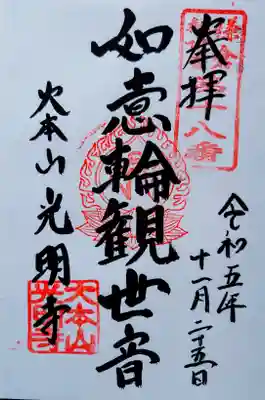 奉拝
令和五年
十一月二十五日
如意輪観世音
大本山光明寺
大本山
光明寺